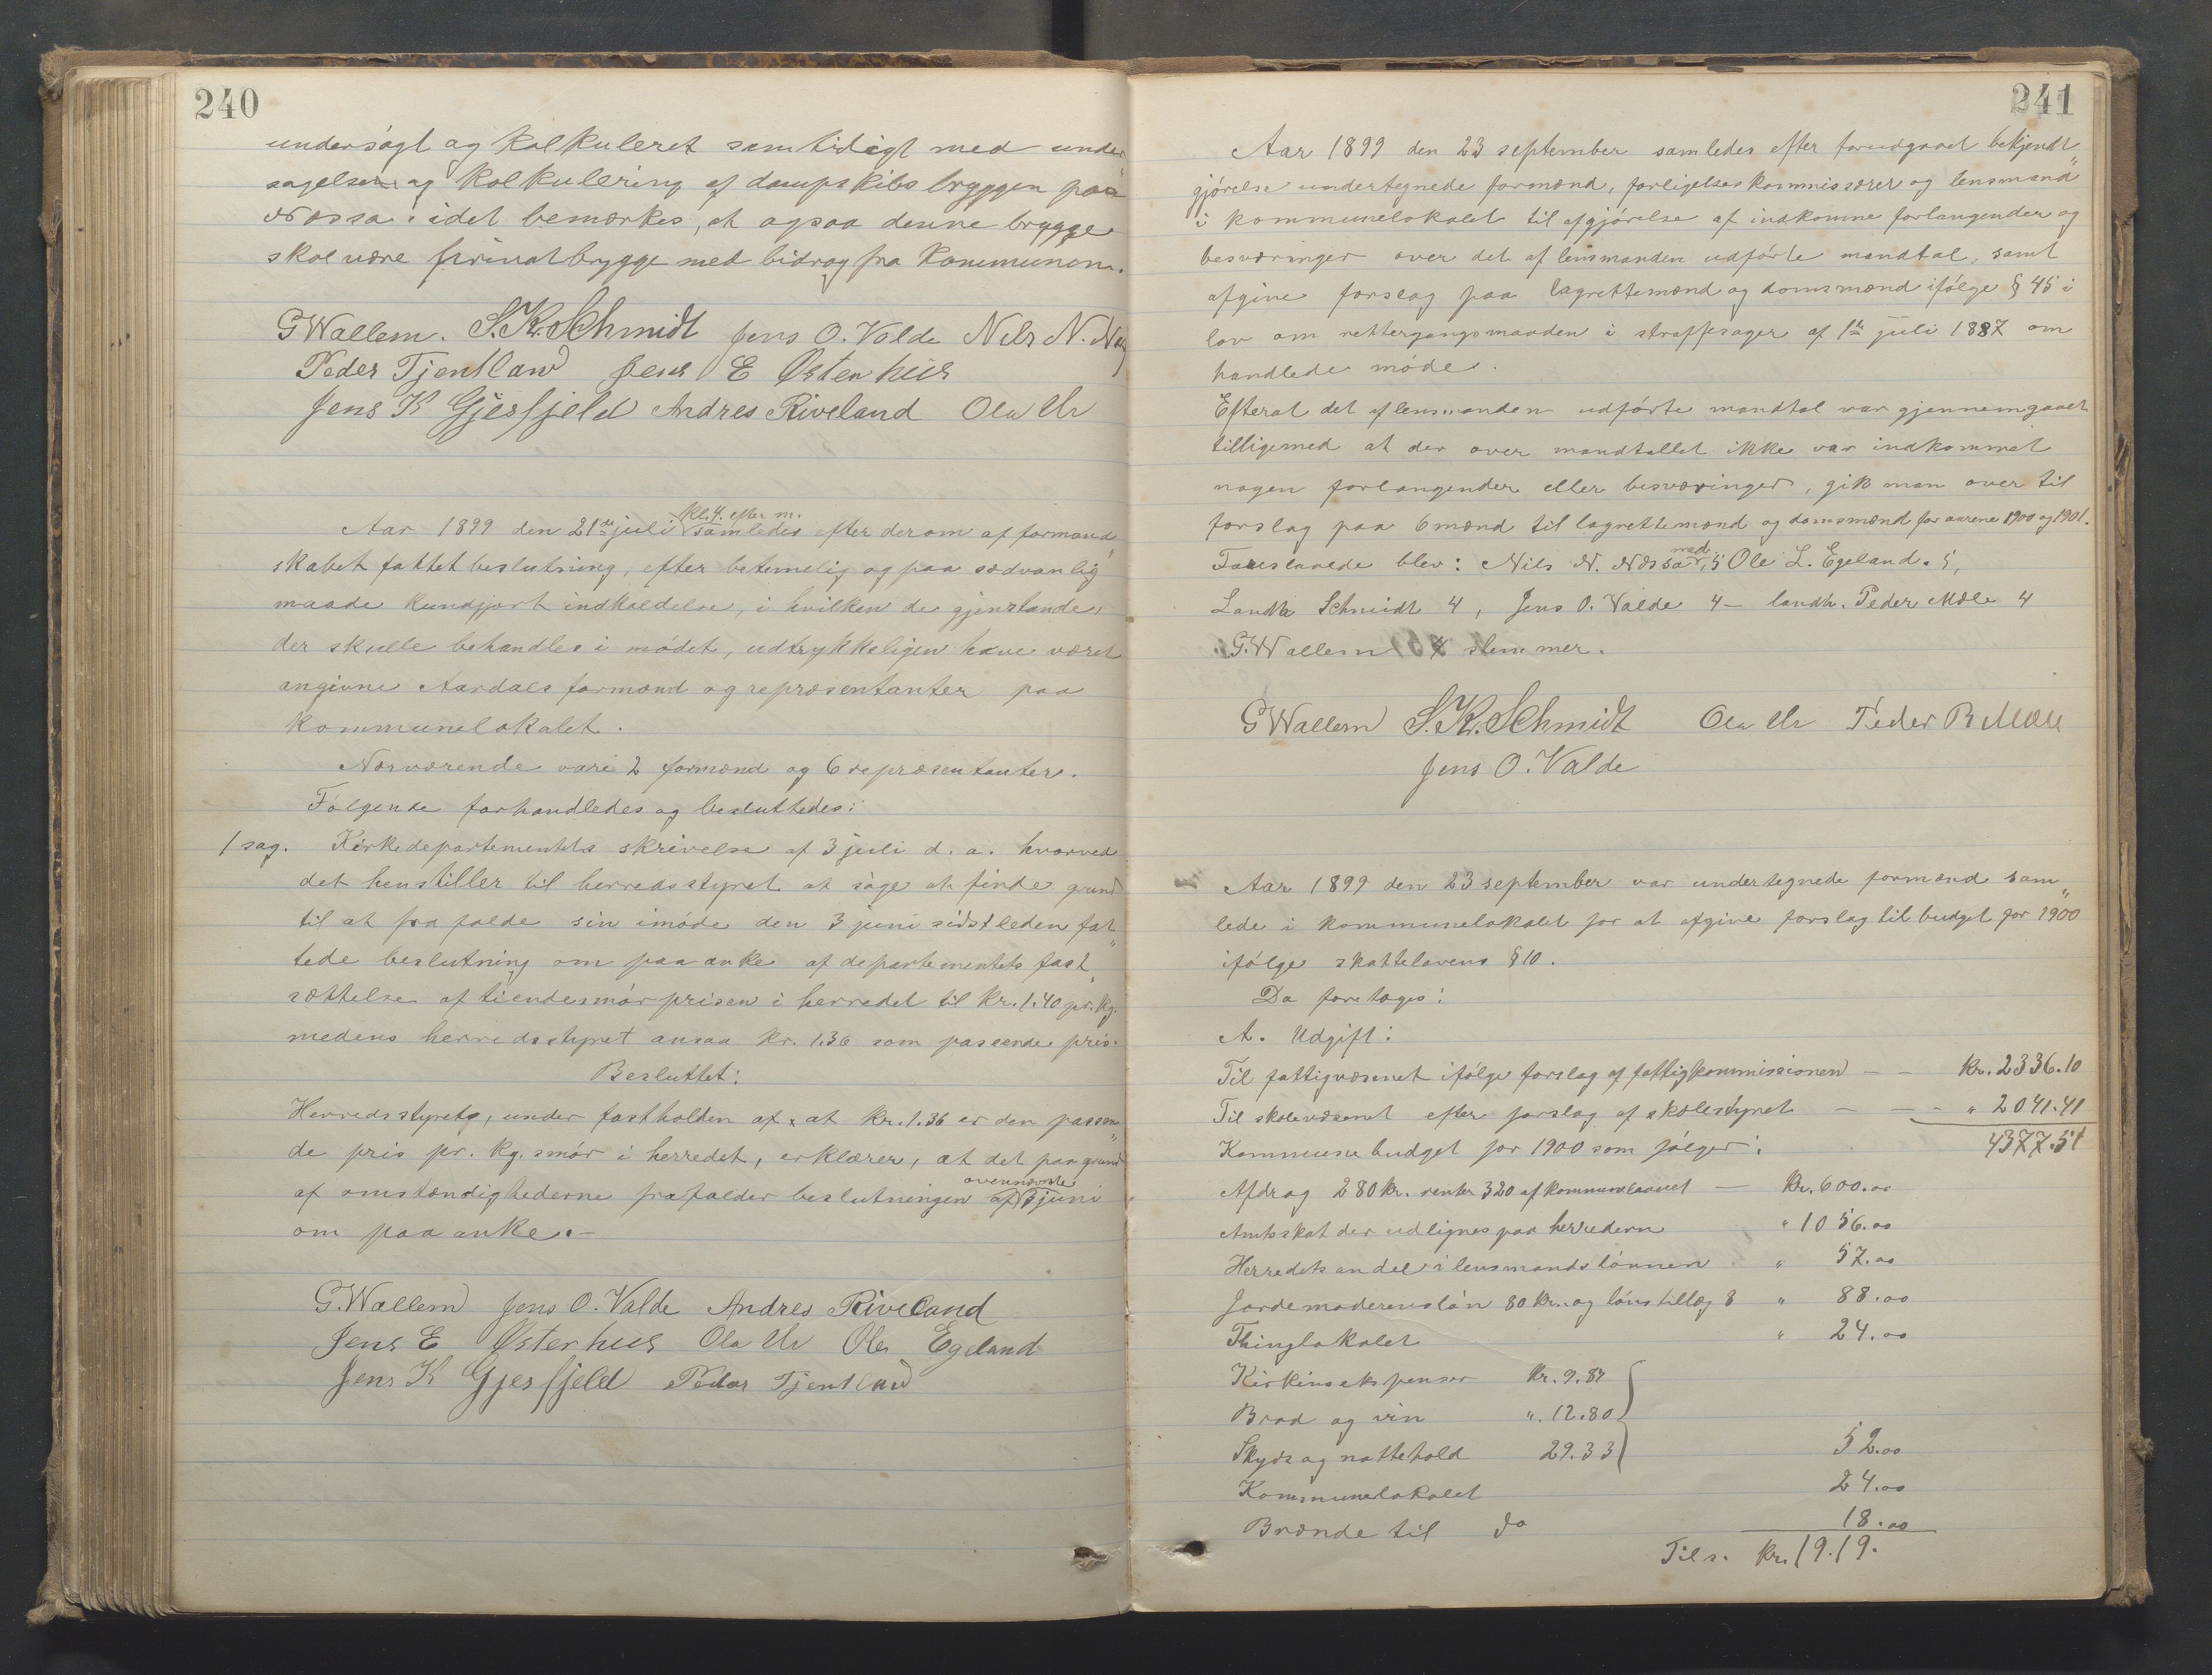 240
undersøgt og kalkuleret samtidigt med under
søgelsen og kalkulering af dampskibsbryggen paa
Nessa: idet bemærkes, at ogsaa denne brygge
skal være privatbrygge med bidrag fra kommunen.
GWallem. S.K.Schmidt Jens O. Valde Nels N.
Peder Tjentland Jens E Østerhus
Jens K Gjesfjeld Andres Riveland Ola Ur
kl. 4. efter m.
Aar 1899 den 21de juli samledes efter derom af formand"
skabet fattet beslutning, efter betimelig og paa sædvanlig
maade kundgjort indkaldelse, i hvilken de gjenstande,
der skulle behandles i mødet, udtrykkeligen have været
angivne Aardals formænd og repræsentanter paa
kommunelokalet.
Nærværende vare 2 formænd og 6 repræsentanter.
Følgende forhandledes og besluttedes:
1 sag. Kirkedepartementets skrivelse af 3 juli d. a. hvorved
det henstiller til herredsstyret at søge at finde grund
til at fra falde sin imøde den 3 juni sidstleden fat"
tede beslutning om paaanke af departementets fast"
sættelse af tiendesmørprisen i herredet til kr. 1.40 pr. kg.
medens herredsstyret ansaa kr. 1.36 som passende pris.
Besluttet:
Herredsstyret, under fastholden af, at kr. 1.36 er den passen"
de pris pr. kg. smør i herredet, erklærer, at det paa grund
af omstændighederne frafalder beslutningen af ovennævnte 3 juni
om paaanke. –
G.Wallem Jens O. Valde Andres Riveland
Jens E Østerhus Ola Ur Ole Egeland
Jens K Gjesfjeld Peder Tjentland
241
Aar 1899 den 23 september samledes efter forudgaaet bekjendt"
gjørelse undertegnede formænd, forligelseskommissærer og lensmand
i kommunelokalet til afgjørelse af indkomne forlangender og
besværinger over det af lensmanden udførte mandtal, samt
afgive forslag paa lagrettemænd og domsmænd ifølge § 45 i
lov om rettergangsmaaden i straffesager af 1ste juli 1887 om
handlede møde.
Efterat det af lensmanden udførte mandtal var gjennemgaaet
tilligemed at der over mandtallet ikke var indkommet
nogen forlangender eller besværinger, gik man over til
forslag paa 6 mænd til lagrettemænd og domsmænd for aarene 1900 og 1901.
Foreslaaede blev: Nils N. Nessa med 5, Ole L. Egeland. 5,
Landh. Schmidt 4, Jens O. Valde 4 – landh. Peder Mæle 4
G.Wallem 4 stemmer.
GWallem S.K.Schmidt Ola Ur Peder R Mæle
Jens O. Valde
Aar 1899 den 23 september var undertegnede formænd sam"
lede i kommunelokalet for at afgive forslag til budget for 1900
ifølge skattelovens § 10.
Da foretoges:
A. Udgift:
Til fattigvæsenet ifølge forslag af fattigkommissionen – – kr. 2336.10
Til skolevæsenet efter forslag af skolestyret – – – " 2041.41
4377.51
Kommunebudget for 1900 som følger:
Afdrag 280 kr. renter 320 af kommunelaanet – kr. 600.00
Amtsskat der udlignes paa herredern " 1056.00
Herredets andel i lensmandslønnen " 57.00
Jordemoderens løn 80 kr. og lønstillæg 8 " 88.00
Thinglokalet " 24.00
Kirkens ekspenser kr. 9.87
Brød og vin ". 12.80
Skyds og nattehold 29.33 52.00
Kommunelokalet 24.00
Brænde til do 18.00
Tils. kr. 1919.